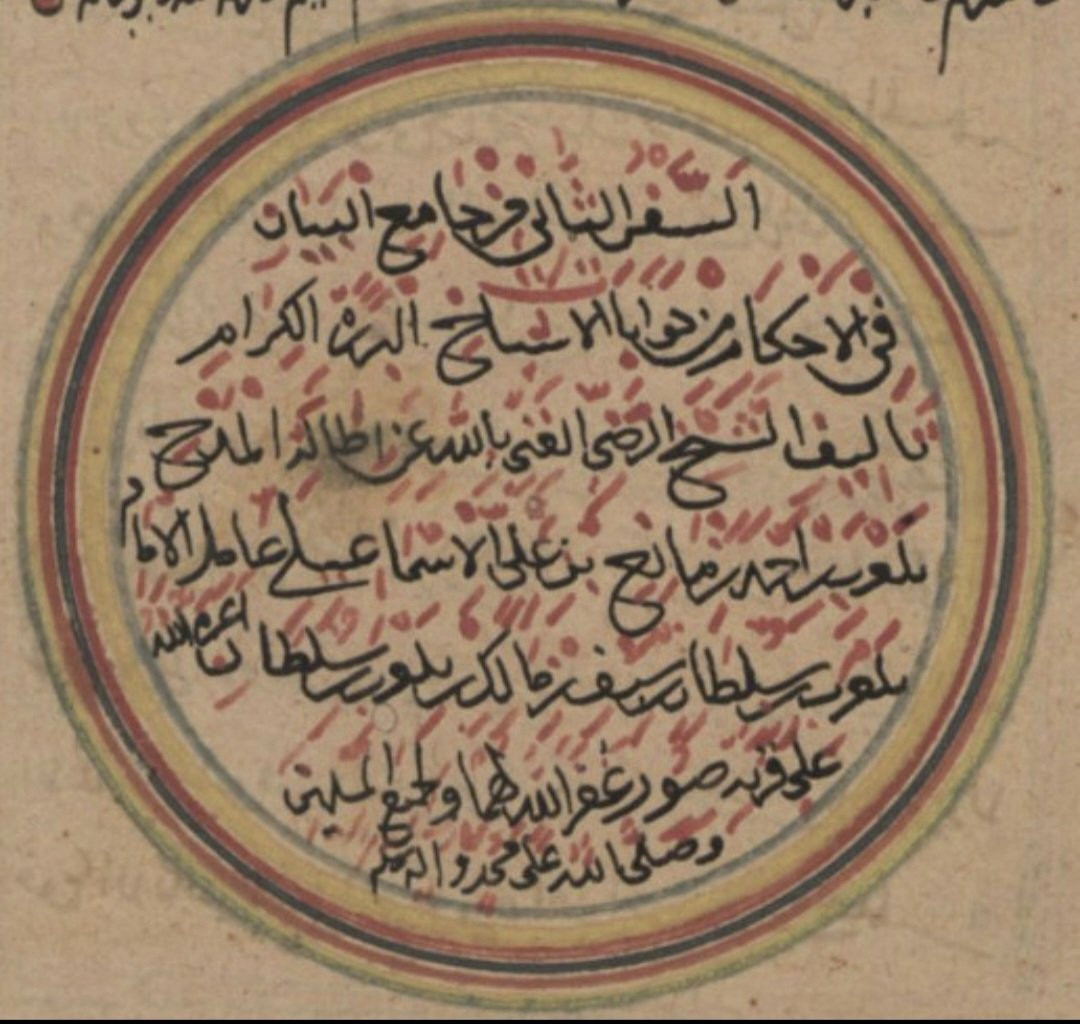 السفر الثاني من جامع البيان
في الاحكام من جوابات الاشياخ البررة الكرام
تاليف الشيخ الرضي الغني بالله عن اطالة المدح
بلعرب بن احمد بن مانع بن علي الاسماعيلي عامل الامام
بلعرب بن سلطان بن سيف بن مالك بن بلعرب بن سلطان اعزه الله
على قرية صور غفر الله لهما ولجميع المسلمين
وصلى الله على محمد واله وسلم